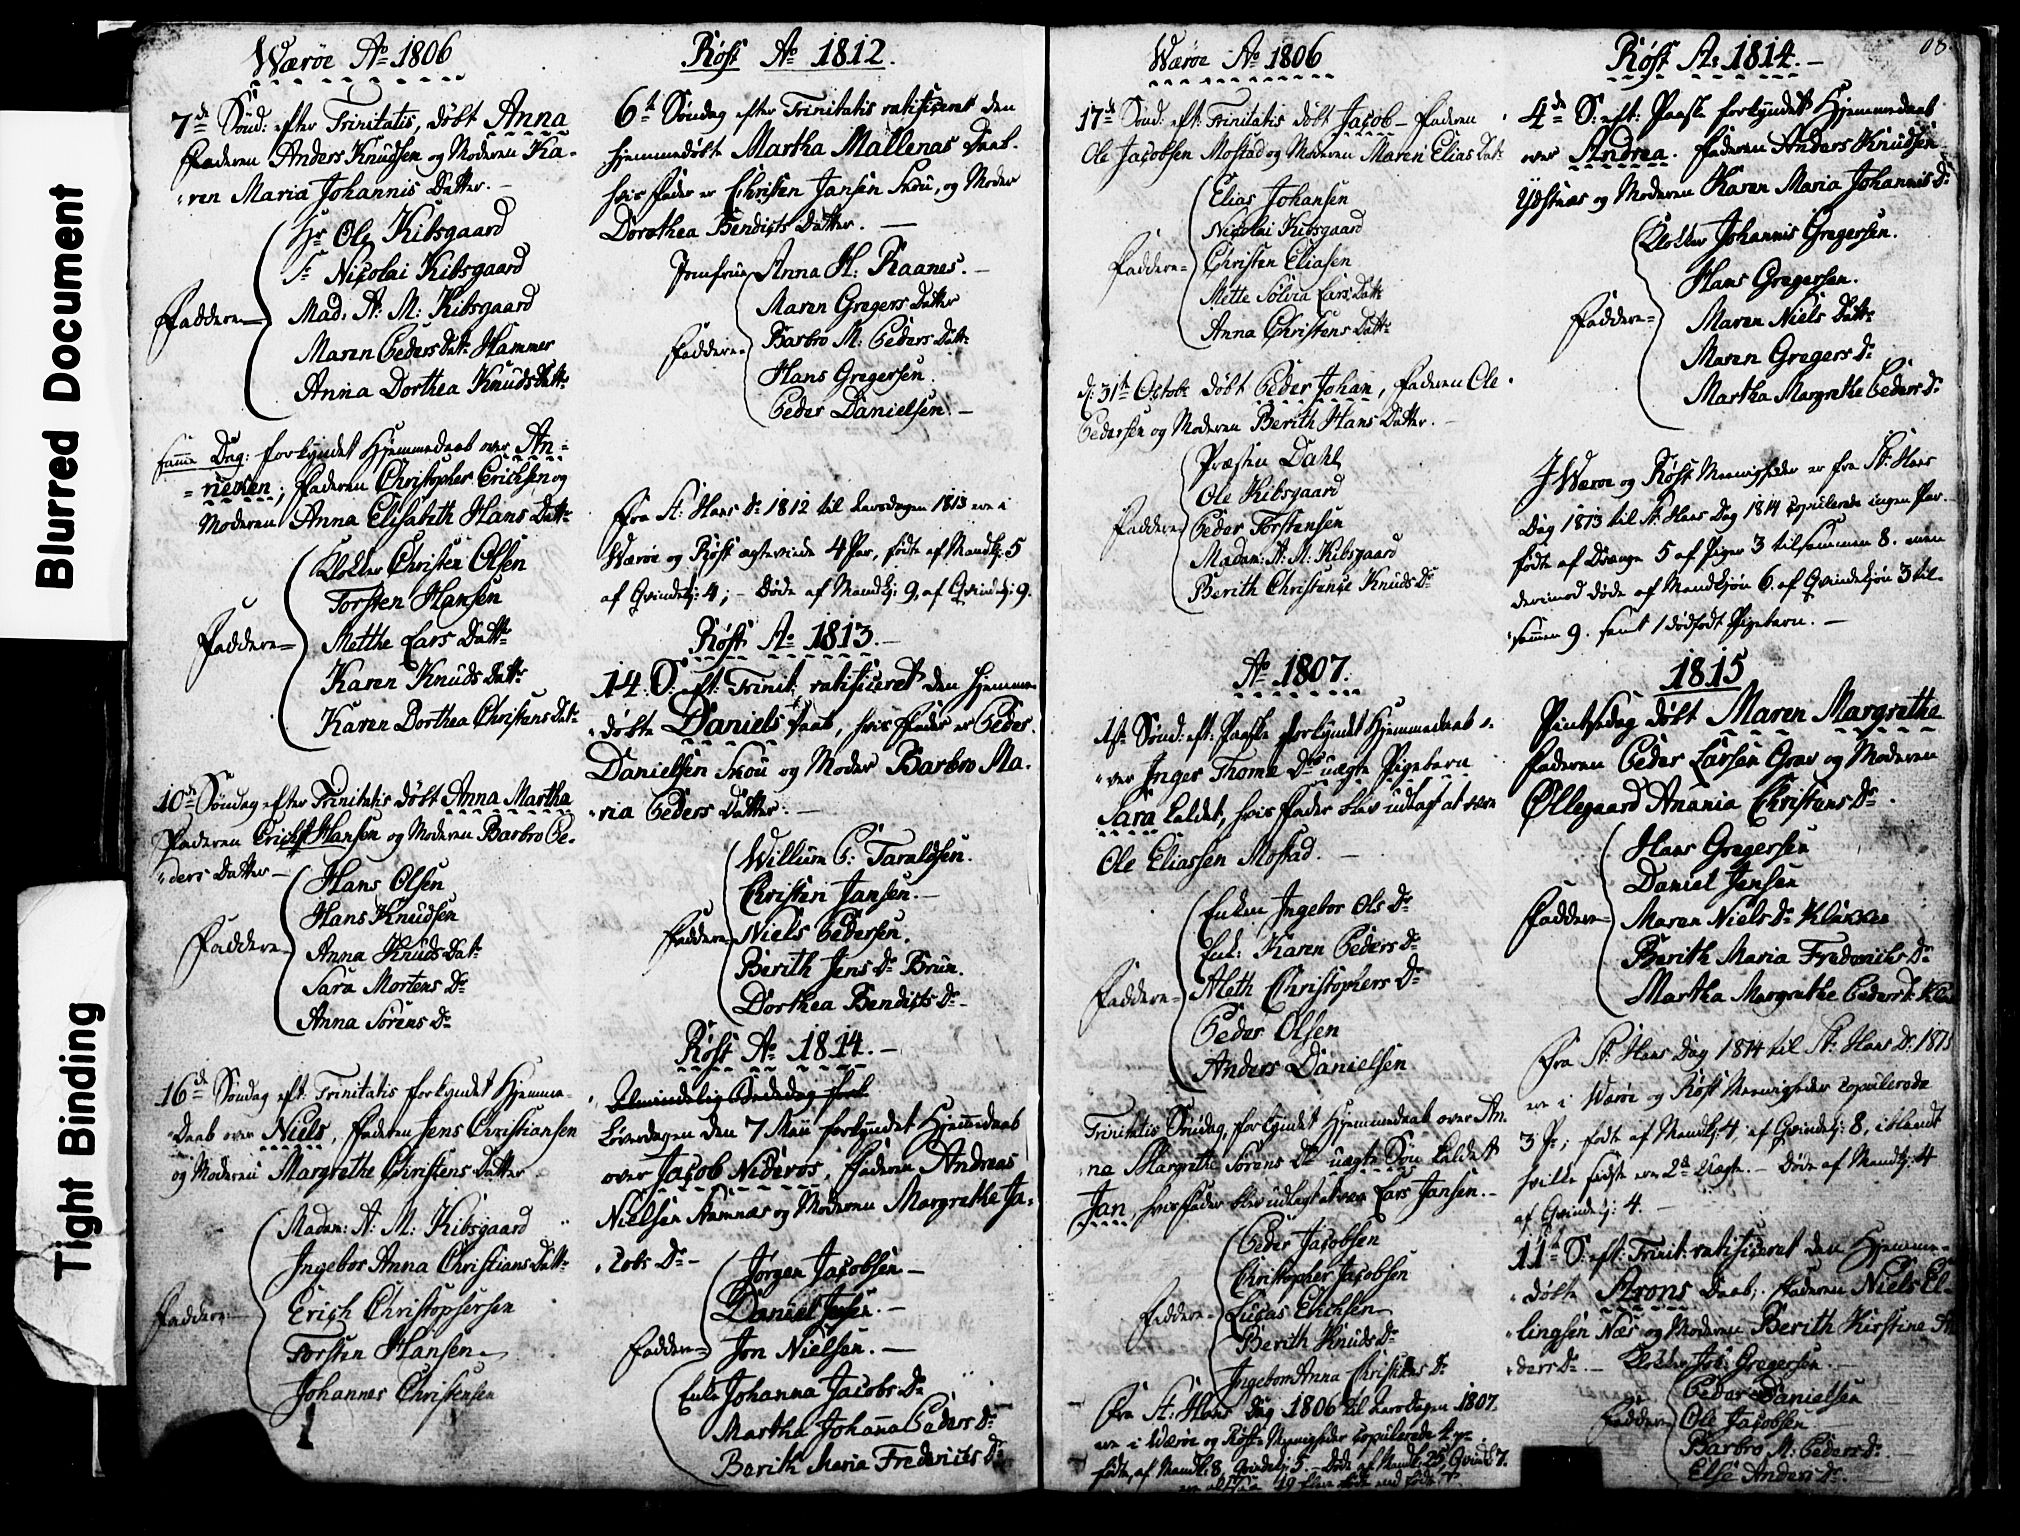 Blurred Document
Tight Binding
Wærøe Ao 1806
7de Sönd: efter Trinitatis, döbt Anna
Faderen Anders Knudsen og Moderen Ka-
ren Maria Johannis Datter.
Hr Ole Kibsgaard
Sr Niçolai Kibsgaard
Mad. A: M: Kibsgaard
Maren Peders Datr Hammer
Anna Dorthea Knuds Dattr
Faddere
samme Dag: forkyndet Hjemmedaab over An-
Faderen Christopher Erichsen og
Moderen Anna Elisabeth Hans Dattr
Klokker Christen Olsen
Torsten Hansen
Metthe Lars Dattr
Karen Knuds Dattr
Karen Dorthea Christens Datr
Faddere
10de Söndag efter Trinitatis döbt Anna Martha
Faderen Erich Hansen og Moderen Barbro Pe-
ders Datter
Hans Olsen
Hans Knudsen
Anna Knuds Datr
Sara Mortens Dr
Anna Sörens Dr
Faddere
16de Söndag eft: Trinitatis forkyndet Hjemme-
daab over Niels, Faderen Jens Christiansen
og Moderen Margrethe Christens Datter
Madam: A: M: Kibsgaard
Ingebor Anna Christians Dattr
Erich Christophersen
Torsten Hansen
Johannes Christensen
Faddere
Röst Ao 1812.
6te Söndag efter Trinitatis ratificeret den
hjemmedöbte Martha Mallenas Daab.
hvis Fader er Christen Jansen Skou, og Moder
Dorothea Bendicts Datter.
Jomfrue Anna H: Raanes.
Maren Gregers Datter
Barbro M: Peders Dattr
Hans Gregersen.
Peder Danielsen.
Faddere
Fra St: Hans Dr 1812 til dagen 1813 ere i
Wærøe og Röst egteviede 4 Par, födte af Mandkj: 5
af Qvindekj: 4; - Döde af Mandkj: 9, af Qvindekj: 9.
Röst Ao 1813.
14. S: eft: Trinit: ratificeret den hjemme-
döbte Daniels Daab, hvis Fader er Peder
Danielsen Skou og Moder Barbro Ma-
ria Peders Datter.
Willum P: Taraldsen.
Christen Jansen.
Niels Pedersen.
Berith Jens Dr Brun.
Dorthea Bendicts Dr
Faddere
Röst Ao 1814.
Almindelig Bededag fork
Löverdagen den 7 Maii forkyndet Hjemmedaab
over Jacob Nideros, Faderen Andreas
Nielsen og Moderen Margrethe Ja-
cobs Dr
Jörgen Jacobsen
Daniel Jensen.
Jon Nielsen.
Enke Johanna Jacobs Dr
Martha Johanna Peders Dr
Berith Maria Friderichs Dr
Faddere
Wærøe Ao 1806
17de Sönd: eft: Trinitatis döbt Jacob Faderen
Ole Jacobsen Mostad og Moderen Maren Elias Datr
Elias Johansen
Niçolai Kibsgaard
Christen Eliasen
Mette Sölvia Lars Datr
Anna Christens Dattr
Faddere
d: 31te Octobr döbt Peder Johan, Faderen Ole
Pedersen og Moderen Berith Hans Datter.
Præsten Dahl
Ole Kibsgaard
Peder Torstensen
Madam: A: M: Kibsgaard
Berith Christense Knuds Dr
Faddere
Ao 1807.
1ste Sönd: eft: Paaske forkyndt Hjemmedaab o-
ver Inger Thomæ Drs uægte Pigebarn
Sara kaldet, hvis Fader blev udlagt at være
Ole Eliassen Mostad.
Enken Ingebor Ols Dr
Enk: Karen Peders Dr
Aleth Christophers Dr
Peder Olsen
Anders Danielsen
Faddere
Trinitatis Söndag, forkyndet Hjemmedaab over An-
na Margrethe Sörens Dr uægte Sön kaldet
Jan, hvis Fader blev udlagt at være Lars Jansen.
Peder Jacobsen
Christopher Jacobsen
Lucas Erichsen
Berith Knuds Dr
Ingebor Anna Christians Dr
Faddere
Fra St: Hans Dag 1806 til dagen 1807
ere i Wærøe og Röst Menigheder copulerede
födte af Mandk: 8 Qvindekj: 5 - Döde af Mandk: 25 Qvindk 7.
Röst Ao 1814.
08
4de S: eft: Paaske forkyndet Hjemmedaab
over Andrea. Faderen Anders Knudsen
Ydstnæs og Moderen Karen Maria Johannis Dr
Klokker Johannis Gregersen.
Hans Gregersen.
Maren Niels Dattr
Maren Gregers Dr
Martha Margrethe Peders Dr
Faddere
I Wærøe og Röst Menigheder er fra St: Hans
Dag 1813 til St: Hans Dag 1814 copulerede ingen Par.
födte af Drenge 5 af Piger 3 tilsammen 8. men
derimod döde af Mandkjön 6. af Qvindekjön 3 til-
sammen 9. samt 1 dödfödt Pigebarn.
1815
Pintsedag döbt Maren Margrethe
Faderen Peder Larsen Grav og Moderen
Öllegaard Anania Christens Dr
Hans Gregersen
Daniel Jensen
Maren Niels Dr Klakken
Berith Maria Frederichs Dr
Martha Margrethe Peders Dr
Faddere
Fra St: Hans Dag 1814 til St: Hans Dr 1815
ere i Wærøe og Röst Menigheder copulerede
3 Pr; födte af Mandkj: 4, af Qvindekj: 8, iblandt
hvilke sidste ere 2de Uægte. - Döde af Mandkj: 4
af Qvindekj: 4.
11te S: eft: Trinit: ratificeret den Hjemme-
döbte Arons Daab, Faderen Niels El-
lingsen Næs og Moderen Berith Kirstine An
ders Dr. - Klokker Joh: Gregersen.
Peder Danielsen
Ole Jacobsen
Barbro M: Peders Dr
Else Anders Dr
Faddere